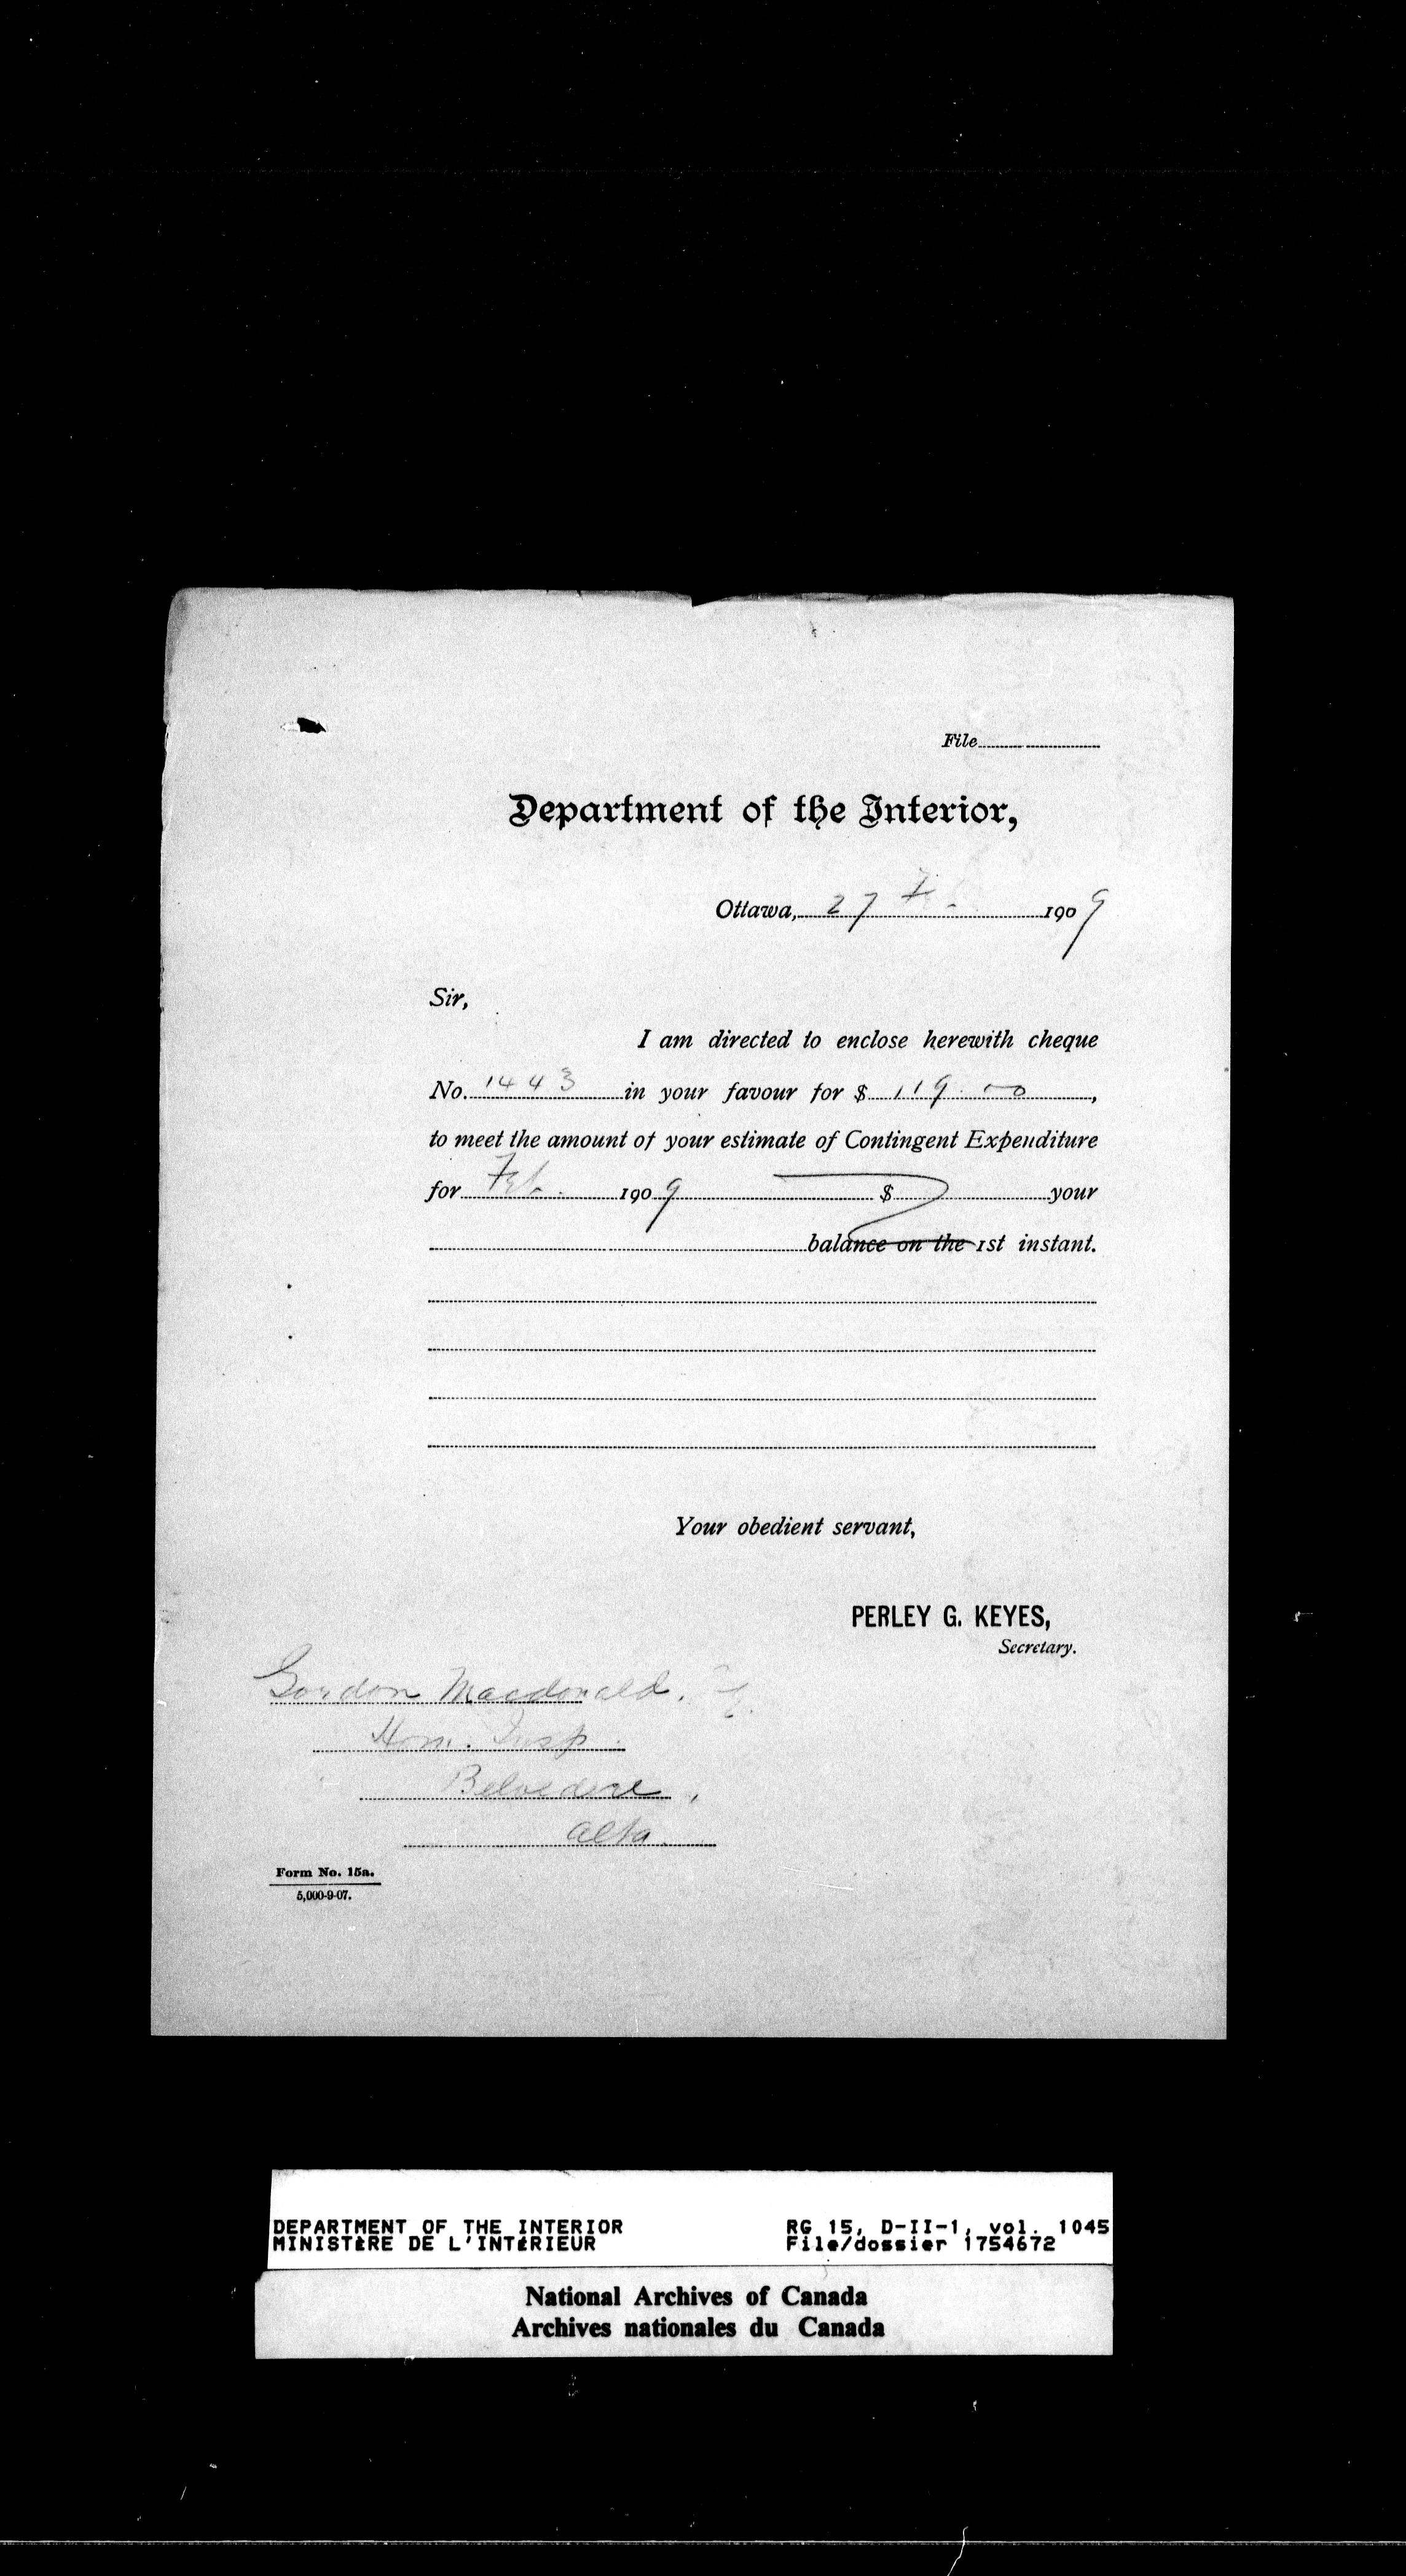 File
Department of the Interior,
Ottawa, 27 Feb. 1909
Sir,
I am directed to enclose herewith cheque
No. 1443 in your favour for $ 119.00,
to meet the amount of your estimate of Contingent Expenditure
for Feb. 1909 $ your
balance on the 1st instant.
Your obedient servant,
PERLEY G. KEYES,
Secretary.
Gordon Macdonald,
Hom. Insp.
Belvedere,
Alta.
Form No. 15a.
5,000-9-07.
DEPARTMENT OF THE INTERIOR RG 15, D-II-1, vol. 1045
MINISTÈRE DE L'INTÉRIEUR File/dossier 1754672
National Archives of Canada
Archives nationales du Canada